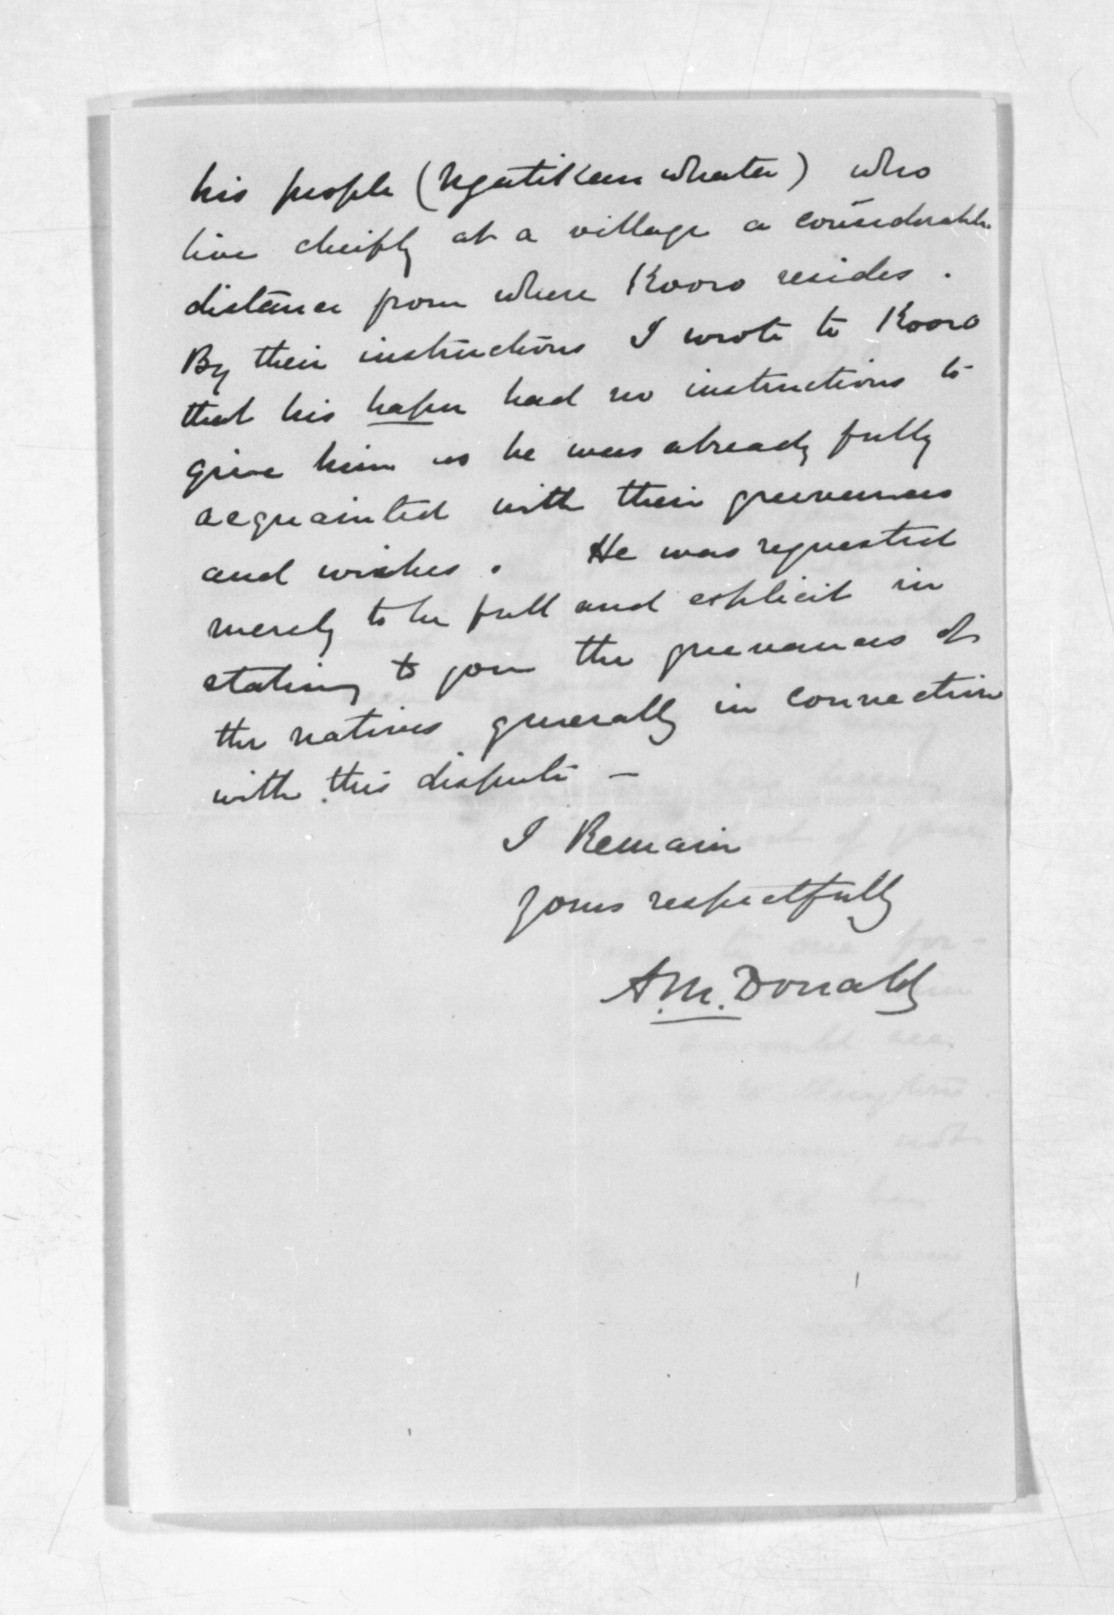 his people (Ngatikauwhata) who
live cheifly at a village a considerable
distance from where Kooro resides.
By their instructions I wrote to Kooro
that his hapu had no instructions to
give him as he was already fully
acquainted with their greivances
and wishes. He was requested
merely to be full and explicit in
stating to you the greivances of
the natives generally in connection
with this dispute —
I Remain
yours respectfully
A. M. Donald